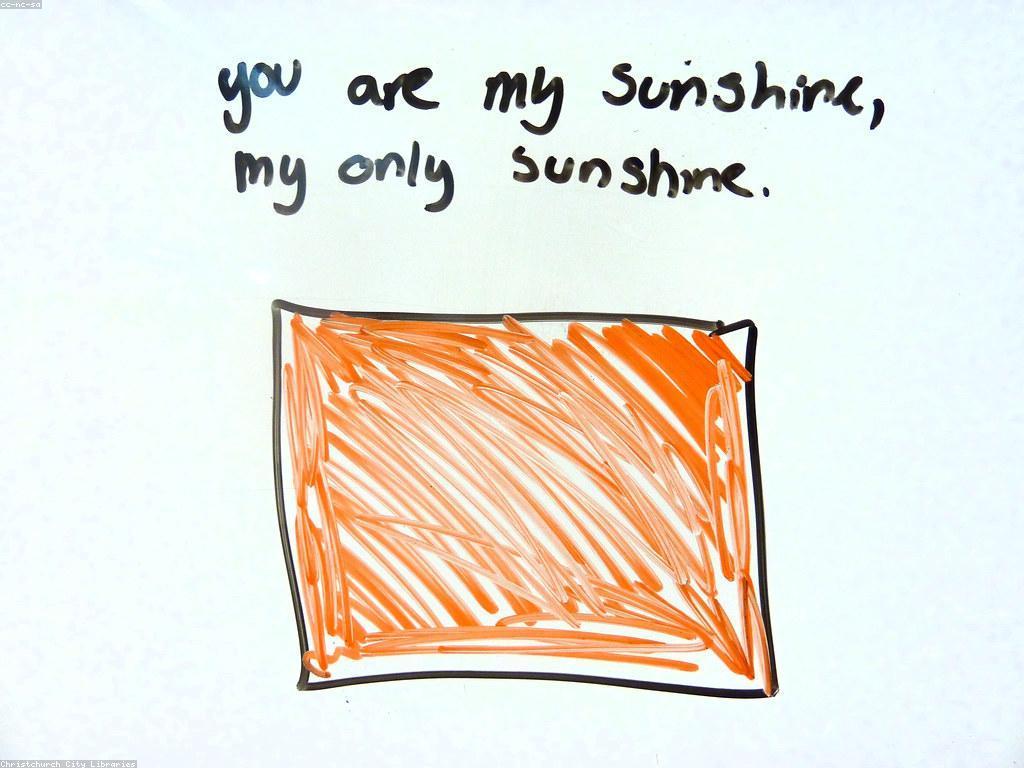 cc-nc-sa
you are my sunshine,
my only sunshine.
Christchurch City Libraries